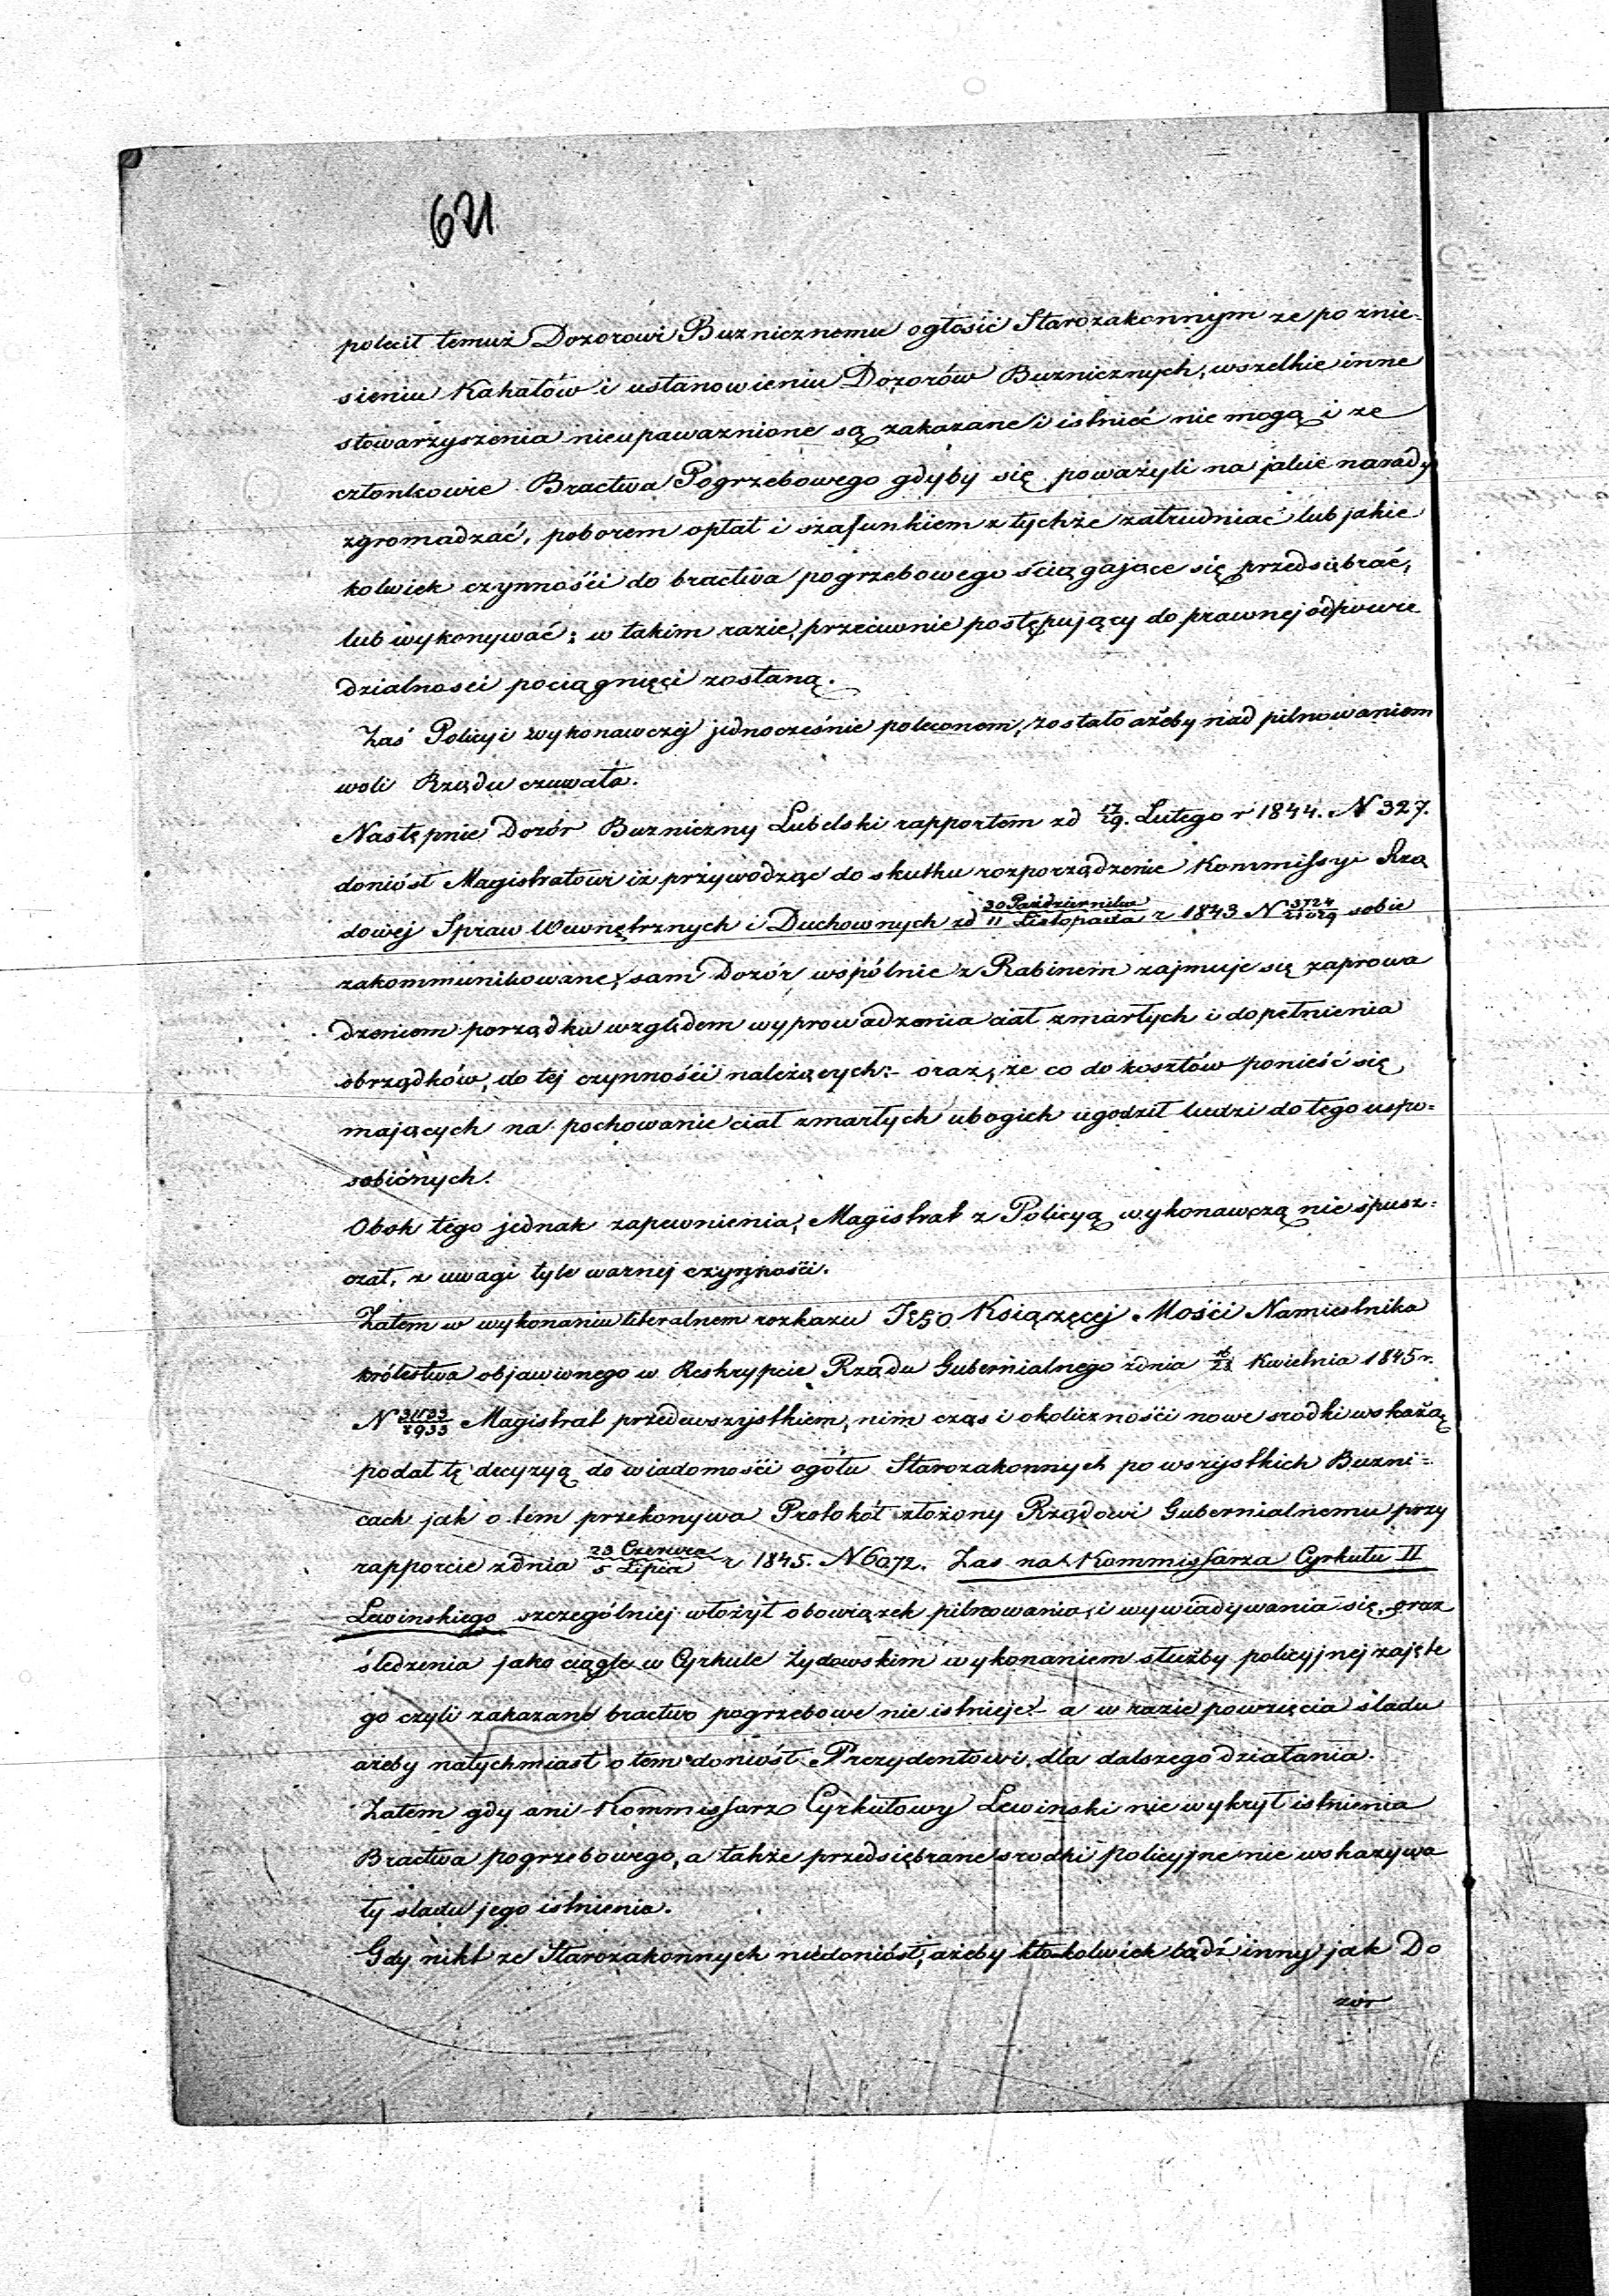 621
polecił temuż Dozorowi Buznicznemu ogłosić Starozakonnym ze po znie=
sieniu Kahałów i ustanowieniu Dozorów Buznicznych, wszelkie inne
stowarzyszenia nieupoważnione są zakazane i istnieć nie mogą i ze
członkowie Bractwa Pogrzebowego gdyby się poważyli na jakie narady
zgromadzać, poborem opłat i szafunkiem z tychże zatrudniać lub jakie
kolwiek czynności do bractwa pogrzebowego ściągające się przedsiębrać,
lub wykonywać; w takim razie, przeciwnie postępujący do prawnej odpowie
dzialnosci pociągnięci zostaną.
Zaś Policyi wykonawczej jednocześnie poleconem, zostało ażeby nad pilnowaniem
woli Rządu czuwała.
Następnie Dozór Buzniczny Lubelski rapportem zd 17/29. Lutego r 1844. N 327.
doniósł Magistratowi iż przywodząc do skutku rozporządzenie Kommissyi Rzą
dowej Spraw Wewnętrznych i Duchownych zd 30 Października/11 Listopada r 1843 N sobie
zakommunikowane, sam Dozór wspólnie z Rabinem zajmuje się zaprowa
dzeniem porządku względem wyprowadzenia ciał zmarłych i dopełnienia
obrządków, do tej czynności należących:- oraz, że co do kosztów ponieść się
mających na pochowanie ciał zmarłych ubogich ugodził ludzi do tego uspo=
sobiónych.
Obok tego jednak zapewnienia, Magistrat z Policyą wykonawczą nie spusz=
czał, z uwagi tyle warnej czynności.
Zatem w wykonaniu literalnem rozkazu JEgo Książęcej Mości Namiestnika
królestwa objawionego w Reskrypcie Rządu Gubernialnego zdnia 16/28 Kwietnia 1845 r.
N Magistrat przedewszystkiem, nim czas i okoliczności nowe srodki wskażą
podał tę decyzyą do wiadomości ogółu Starozakonnych po wszystkich Buzni=
cach jak o tem przekonywa Protokół złożony Rządowi Gubernialnemu przy
rapporcie zdnia 23 Czerwca/5 Lipca r 1845. N 6072. Zas na Kommissarza Cyrkułu II
Lewinskiego szczególniej włożył obowiązek pilnowania, i wywiadywania się, oraz
śledzenia jako ciągle w Cyrkule żydowskim wykonaniem służby policyjnej zajęte
go czyli zakazane bractwo pogrzebowe nie istnieje?- a w razie powzięcia śladu
ażeby natychmiast o tem doniósł Prezydentowi, dla dalszego działania.
Zatem gdy ani Kommissarz Cyrkułowy Lewinski nie wykrył istnienia
Bractwa pogrzebowego, a także przedsiębrane srodki policyjne nie wskazywa
ły sladu jego istnienia.
Gdy nikt ze Starozakonnych niedoniósł, ażeby ktokolwiek bądź inny jak Do
zór